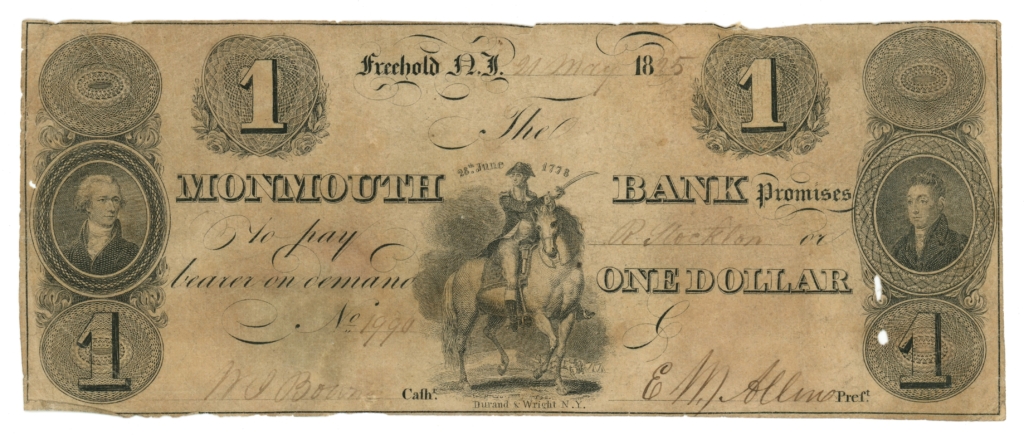 1 Freehold N.J. 21 May 1825 1
The
28th June 1778
MONMOUTH BANK Promises
To pay R Stockton or
bearer on demand ONE DOLLAR
No
1 1
Cashr. E M Allen Prest.
Durand & Wright N.Y.